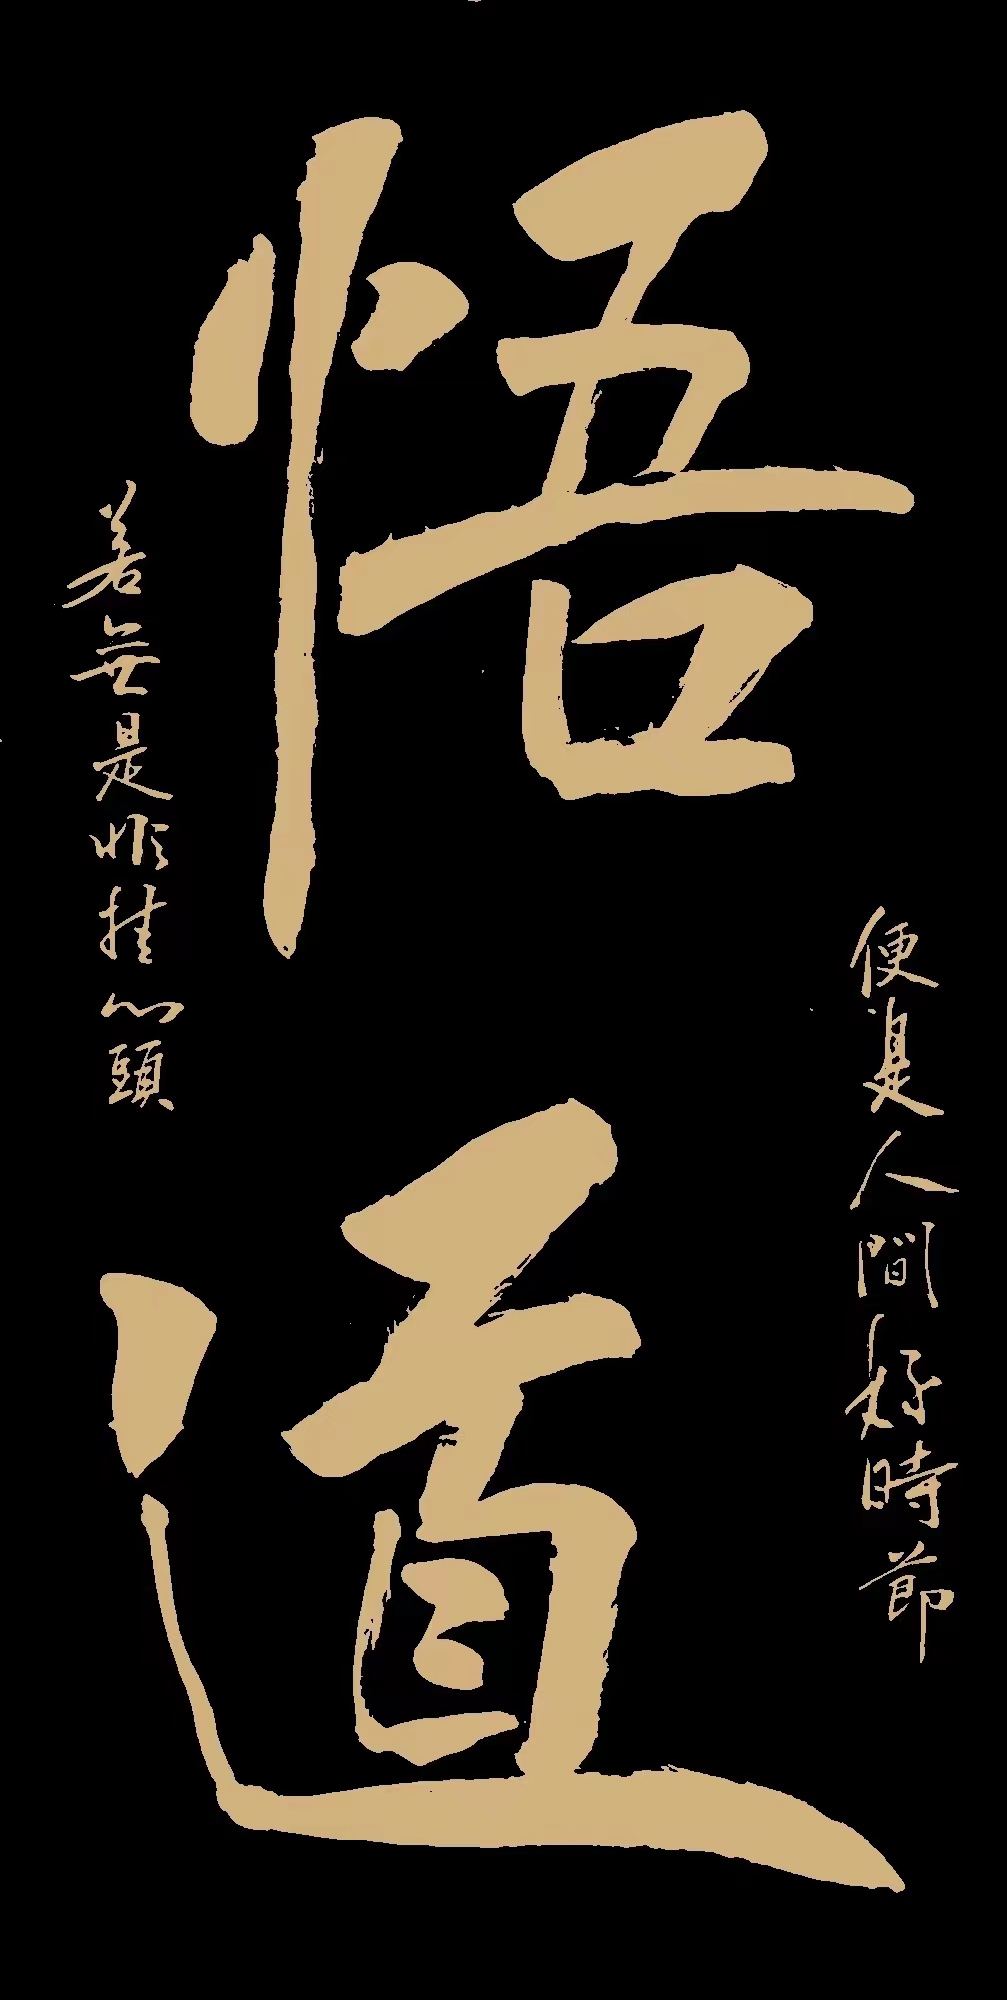 悟道
若無是非挂心頭
便是人間好時節